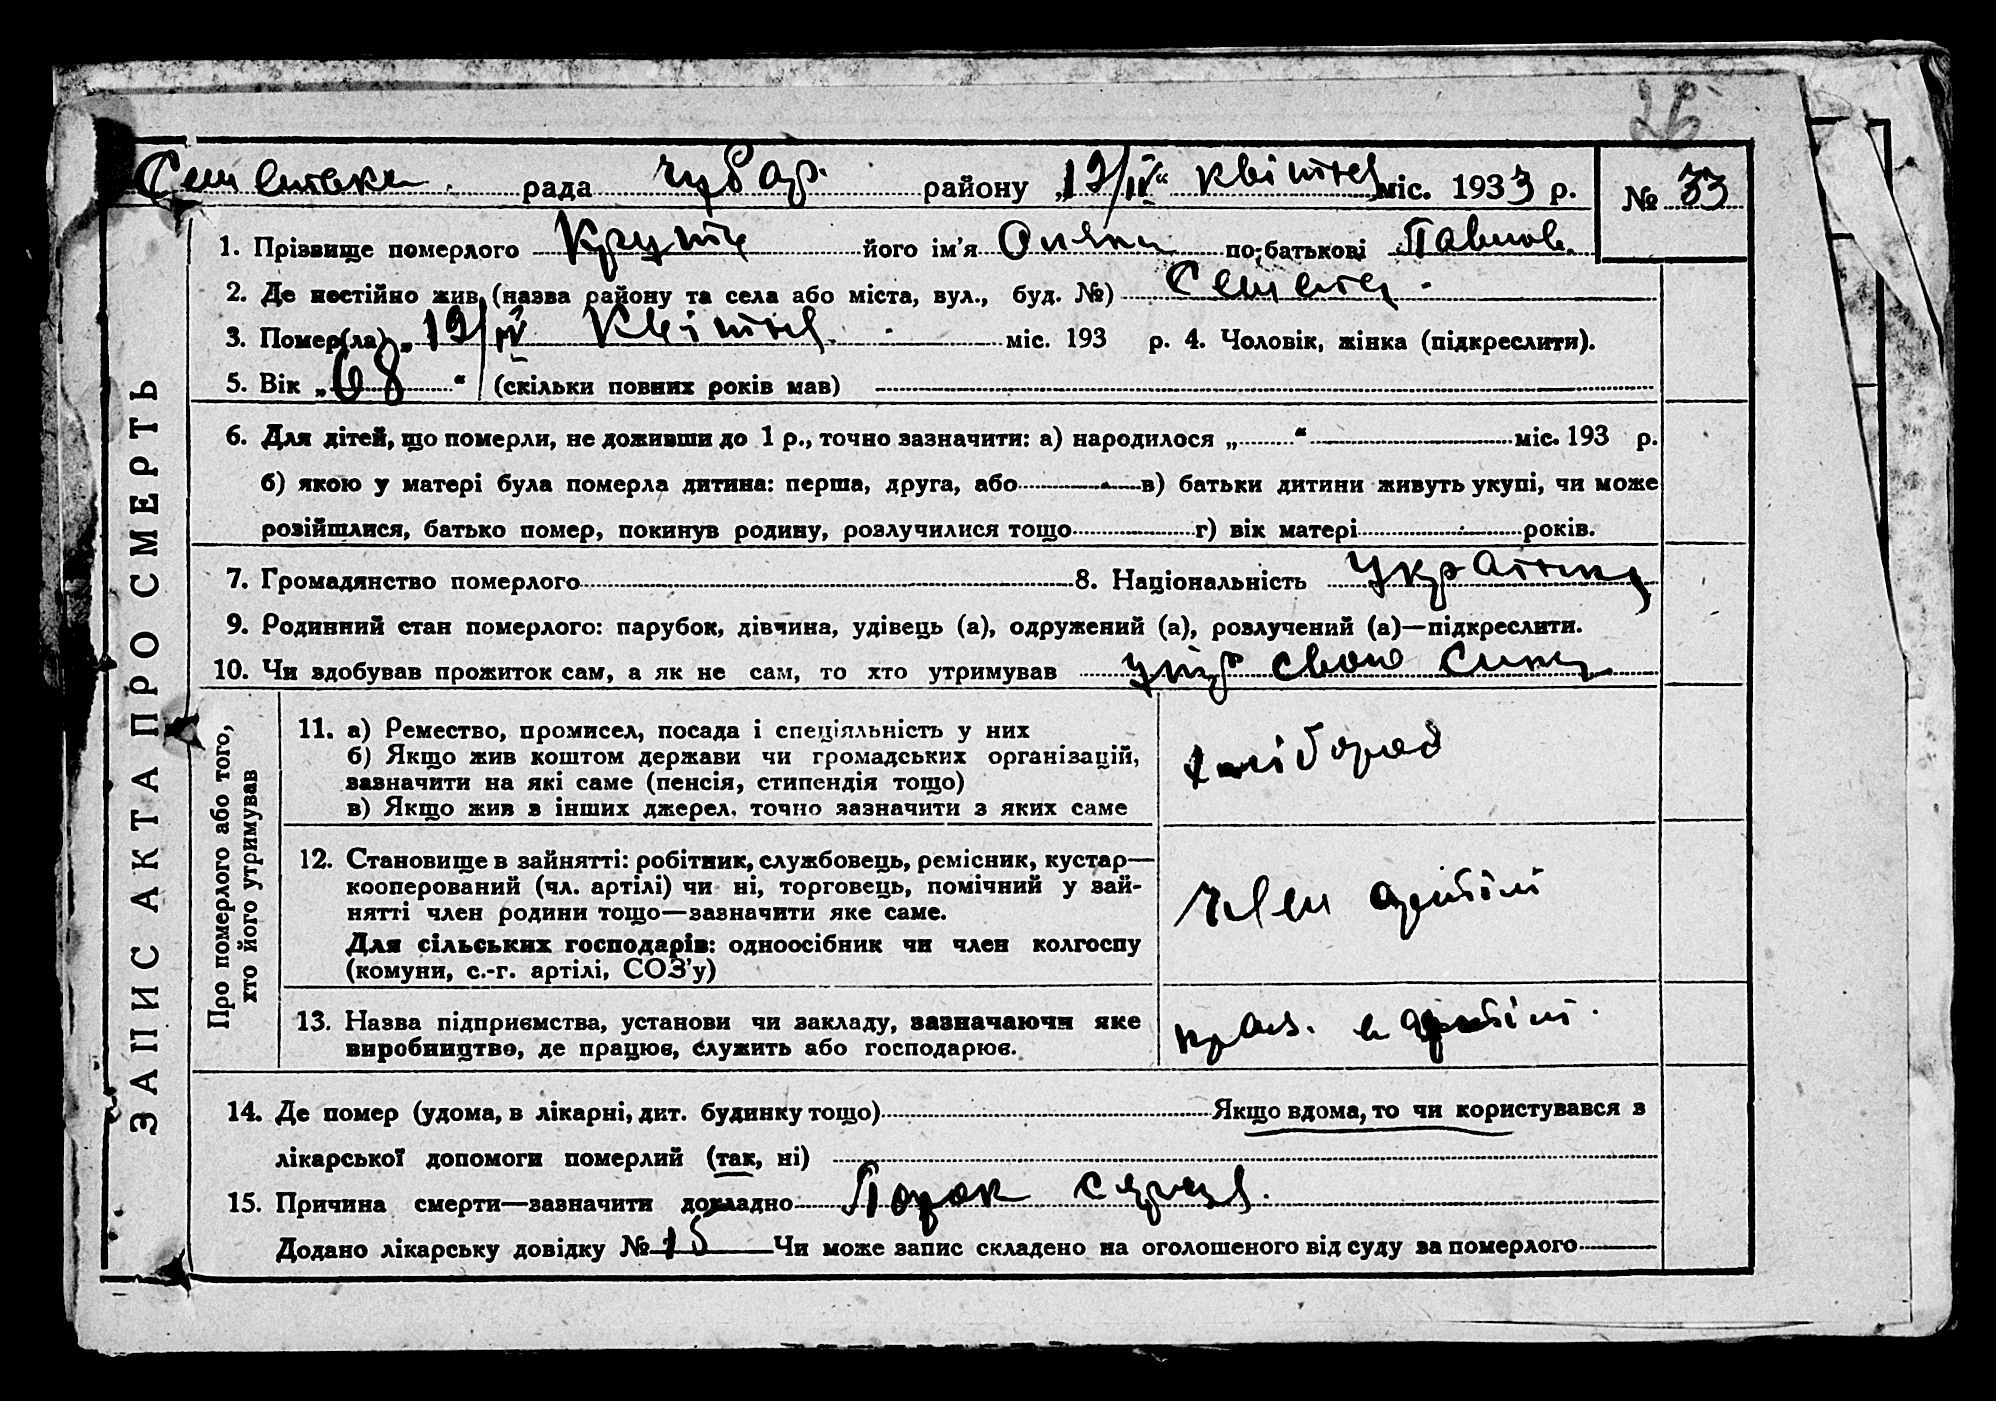 рада чубар. району „19/IV“ квітня міс. 1933 р. № 33
1. Прізвище померлого його ім'я по-батькові Павлов.
2. Де постійно жив (назва району та села або міста, вул., буд. №)
3. Помер(ла) „19/IV квітня міс. 193 р. 4. Чоловік, жінка (підкреслити).
5. Вік „68“ (скільки повних років мав)
6. Для дітей, що померли, не доживши до 1 р., точно зазначити: а) народилося „ “ міс. 193 р.
б) якою у матері була померла дитина: перша, друга, або в) батьки дитини живуть укупі, чи може
розійшлися, батько помер, покинув родину, розлучилися тощо г) вік матері років.
7. Громадянство померлого 8. Національність Україінка
9. Родинний стан померлого: парубок, дівчина, удівець (а), одружений (а), розлучений (а)—підкреслити.
10. Чи здобував прожиток сам, а як не сам, то хто утримував свого сина
ЗАПИС АКТА ПРО СМЕРТЬ
Про померлого або того,
хто його утримував
11. а) Ремество, промисел, посада і спеціяльність у них
б) Якщо жив коштом держави чи громадських організацій,
зазначити на які саме (пенсія, стипендія тощо)
в) Якщо жив з інших джерел, точно зазначити з яких саме
хлібороб
12. Становище в зайнятті: робітник, службовець, ремісник, кустар—
кооперований (чл. артілі) чи ні, торговець, помічний у зай-
нятті член родини тощо—зазначити яке саме.
Для сільських господарів: одноосібник чи член колгоспу
(комуни, с.-г. артілі, СОЗ'у)
член артілі
13. Назва підприємства, установи чи закладу, зазначаючи яке
виробництво, де працює, служить або господарює.
прац. в артілі.
14. Де помер (удома, в лікарні, дит. будинку тощо) Якщо вдома, то чи користувався з
лікарської допомоги померлий (так, ні)
15. Причина смерти—зазначити докладно Порок серця.
Додано лікарську довідку № 15 Чи може запис складено на оголошеного від суду за померлого